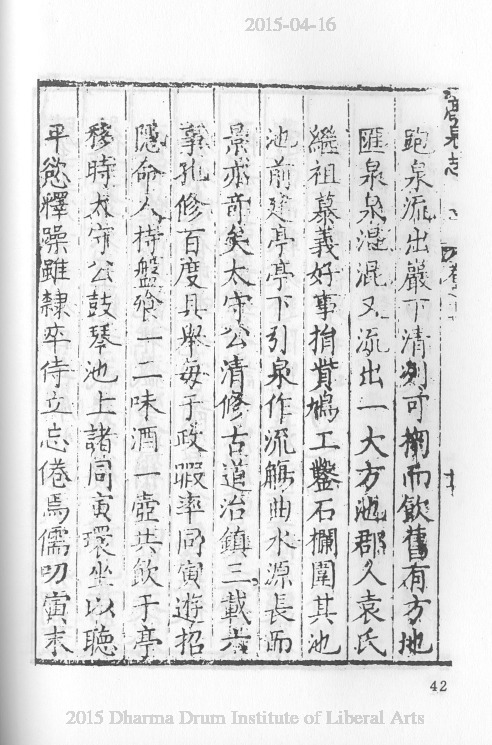 2015-04-16
跑泉流出巖下清冽可掬而飲舊有方池
匯泉泉混混又流出一大方池郡人袁氏
繼祖慕義好事捐貲鳩工鑿石欄圍其池
池前建亭亭下引泉作流觴曲水源長而
景亦奇矣太守公清修古道治鎮三載六
事孔修百度具舉每于政暇率同寅遊招
隱命人持盤飱一二味酒一壺共飲于亭
移時太守公鼓琴池上諸同寅環坐以聽
平慾釋躁雖隸卒侍立忘倦焉儒叨寅末
泉志
42
2015 Dharma Drum Institute of Liberal Arts